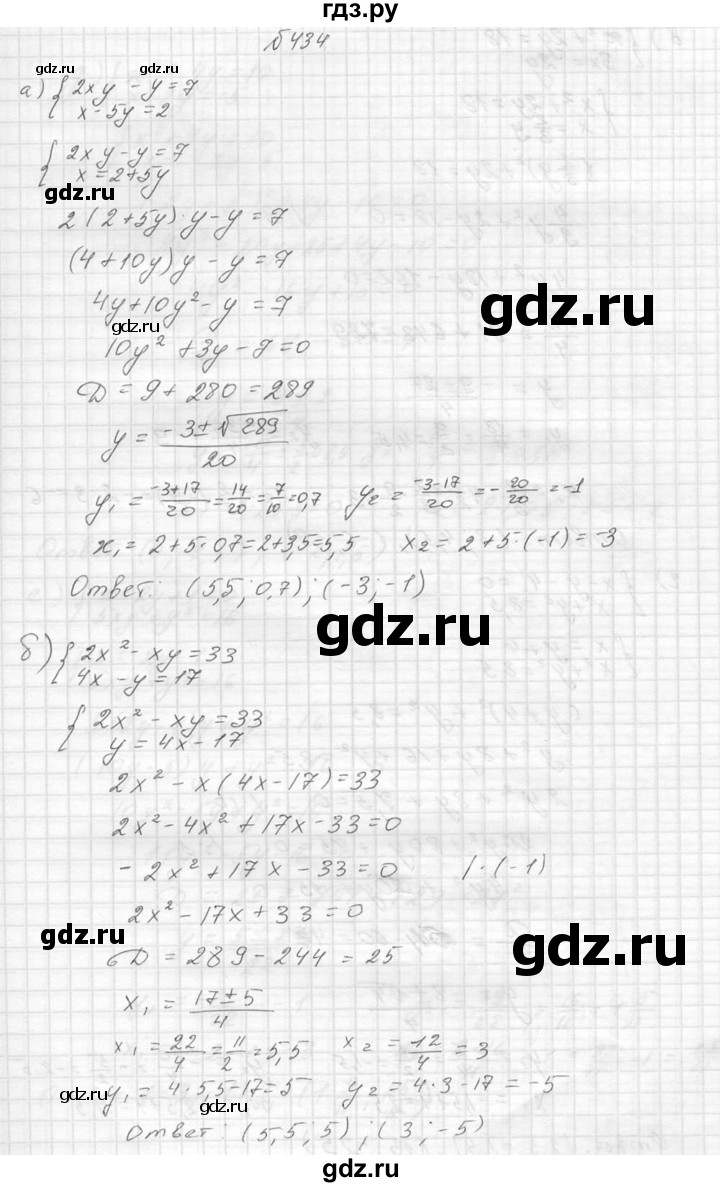 гдз.ру
№434
gdz.ru gdz.ru
а) { 2xy - y = 7
x - 5y = 2
{ 2xy - y = 7
x = 2 + 5y
gdz.ru
2(2 + 5y)·y - y = 7
(4 + 10y)y - y = 7
4y + 10y² - y = 7
gdz.ru
gdz.ru
10y² + 3y - 7 = 0
D = 9 + 280 = 289
y = (-3 ± √289)/20
y₁ = (-3+17)/20 = 14/20 = 7/10 = 0,7 y₂ = (-3-17)/20 = -20/20 = -1
x₁ = 2 + 5·0,7 = 2 + 3,5 = 5,5 x₂ = 2 + 5·(-1) = -3
Ответ: (5,5; 0,7); (-3; -1)
gdz.ru
gdz.ru
б) { 2x² - xy = 33
4x - y = 17
{ 2x² - xy = 33
y = 4x - 17
2x² - x(4x - 17) = 33
2x² - 4x² + 17x - 33 = 0
-2x² + 17x - 33 = 0 |·(-1)
2x² - 17x + 33 = 0
gdz.ru
gdz.ru
D = 289 - 244 = 25
x₁ = (17 ± 5)/4
x₁ = 22/4 = 11/2 = 5,5 x₂ = 12/4 = 3
y₁ = 4·5,5 - 17 = 5 y₂ = 4·3 - 17 = -5
gdz.ru gdz.ru
gdz.ru
Ответ: (5,5; 5); (3; -5)
gdz.ru
gdz.ru